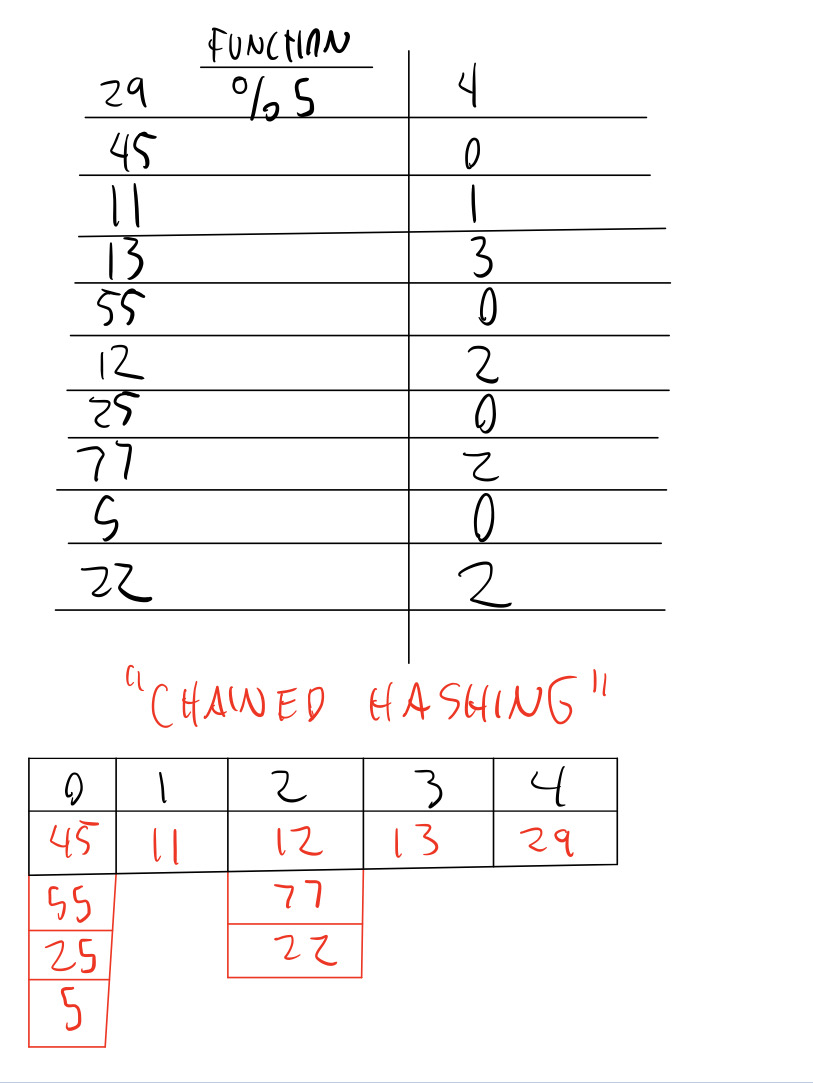 FUNCTION
29 % 5 4
45 0
11 1
13 3
55 0
12 2
25 0
77 2
5 0
22 2
"CHAINED HASHING"
0 1 2 3 4
45 11 12 13 29
55 77
25 22
5